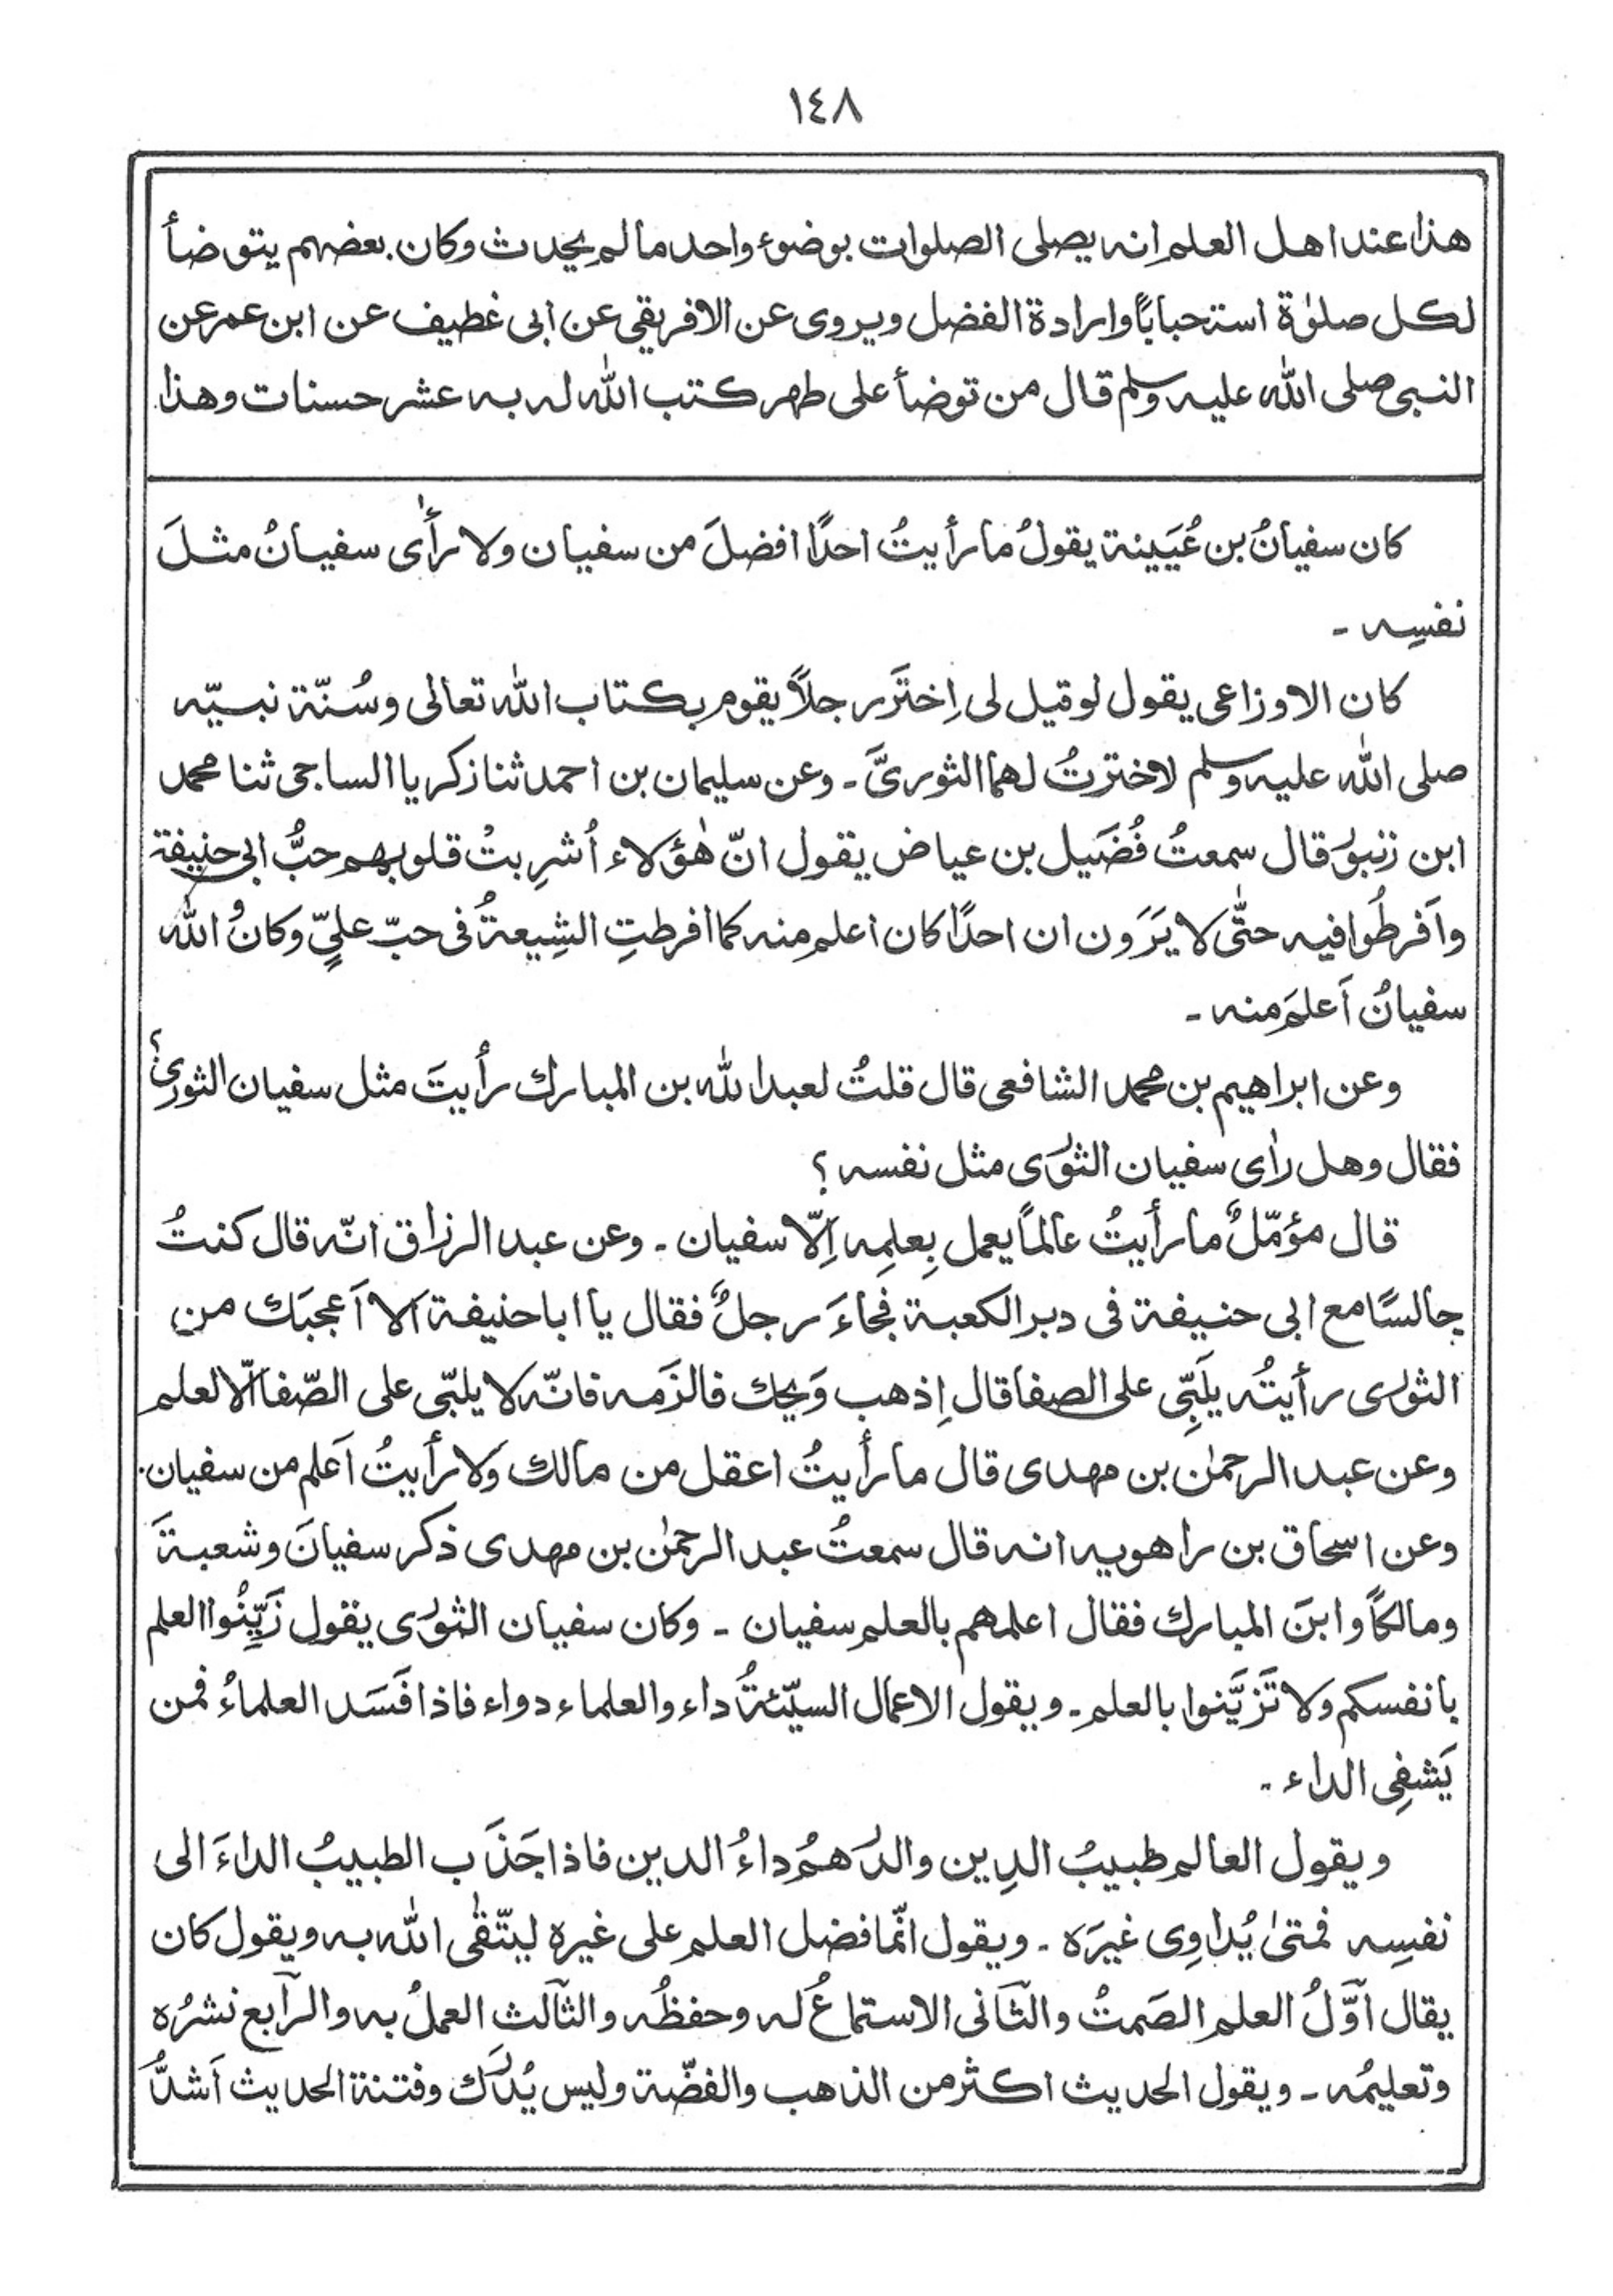 ١٤٨
هذا عند اهل العلم انه يصلى الصلوات بوضوء واحد ما لم يحدث وكان بعضهم يتوضأ
لكل صلوٰة استحبابًا وارادة الفضل ويروى عن الافريقي عن ابى غطيف عن ابن عمر عن
النبى صلى الله عليه وسلم قال من توضأ على طهر كتب الله له به عشر حسنات وهذا
كان سفيانُ بن عُيَينة يقولُ ما رأيتُ احدًا افضلَ من سفيان ولا رأى سفيانُ مثلَ
نفسِه ـ
كان الاوزاعى يقول لو قيل لى اِختَر رجلاً يقوم بكتاب الله تعالى وسُنّة نبيّه
صلى الله عليه وسلم لاخترتُ لهما الثورىَّ ـ وعن سليمان بن احمد ثنا زكريا الساجى ثنا محمد
ابن زنبور قال سمعتُ فُضَيل بن عياض يقول انّ هٰؤلاء اُشرِبتْ قلوبهم حبُّ ابى حنيفة
واَفرطُوا فيه حتّٰى لا يَرَون ان احدًا كان اعلم منه كما افرطتِ الشِيعةُ فى حبّ علىٍّ وكانَ واللهِ
سفيانُ اَعلمَ منه ـ
وعن ابراهيم بن محمد الشافعى قال قلتُ لعبد الله بن المبارك رأيتَ مثل سفيان الثورى؟
فقال وهل راٰى سفيان الثورى مثل نفسه ؟
قال مؤمّلٌ ما رأيتُ عالمًا يعمل بِعلمِه اِلّا سفيان ـ وعن عبد الرزاق انّه قال كنتُ
جالسًا مع ابى حنيفة فى دبر الكعبة فجاءَ رجلٌ فقال يا ابا حنيفة اَلا اَعجبَك من
الثورى رأيتُه يلَبِّى على الصفا قال اِذهب وَيحك فالزَمه فانّه لا يلبّى على الصّفا الّا لعلم
وعن عبد الرحمٰن بن مهدى قال ما رأيتُ اعقل من مالك وَلا رأيتُ اَعلم من سفيان.
وعن اسحاق بن راهويه انه قال سمعتُ عبد الرحمٰن بن مهدى ذكر سفيانَ وشعبةَ
ومالكًا وابنَ المبارك فقال اعلمهم بالعلم سفيان ـ وكان سفيان الثورى يقول زَيِّنُوا العلم
بانفسكم ولا تَزيَّنوا بالعلم ـ ويقول الاعمال السيّئةُ داء والعلماء دواء فاذا فَسَد العلماءُ فمن
يَشفِى الداء ـ
ويقول العالم طبيبُ الدِين والدرهمُ داءُ الدين فاذا جَذَب الطبيبُ الداءَ الى
نفسِه فمتىٰ يُداوِى غيرَه ـ ويقول انّما فضل العلم على غيره ليتّقٰى الله به ويقول كان
يقال اَوّلُ العلم الصَمتُ والثانى الاستماعُ له وحفظُه والثالث العملُ به والرابع نشرُه
وتعليمُه ـ ويقول الحديث اكثر من الذهب والفضّة وليس يُدرَك وفتنة الحديث اَشدُّ